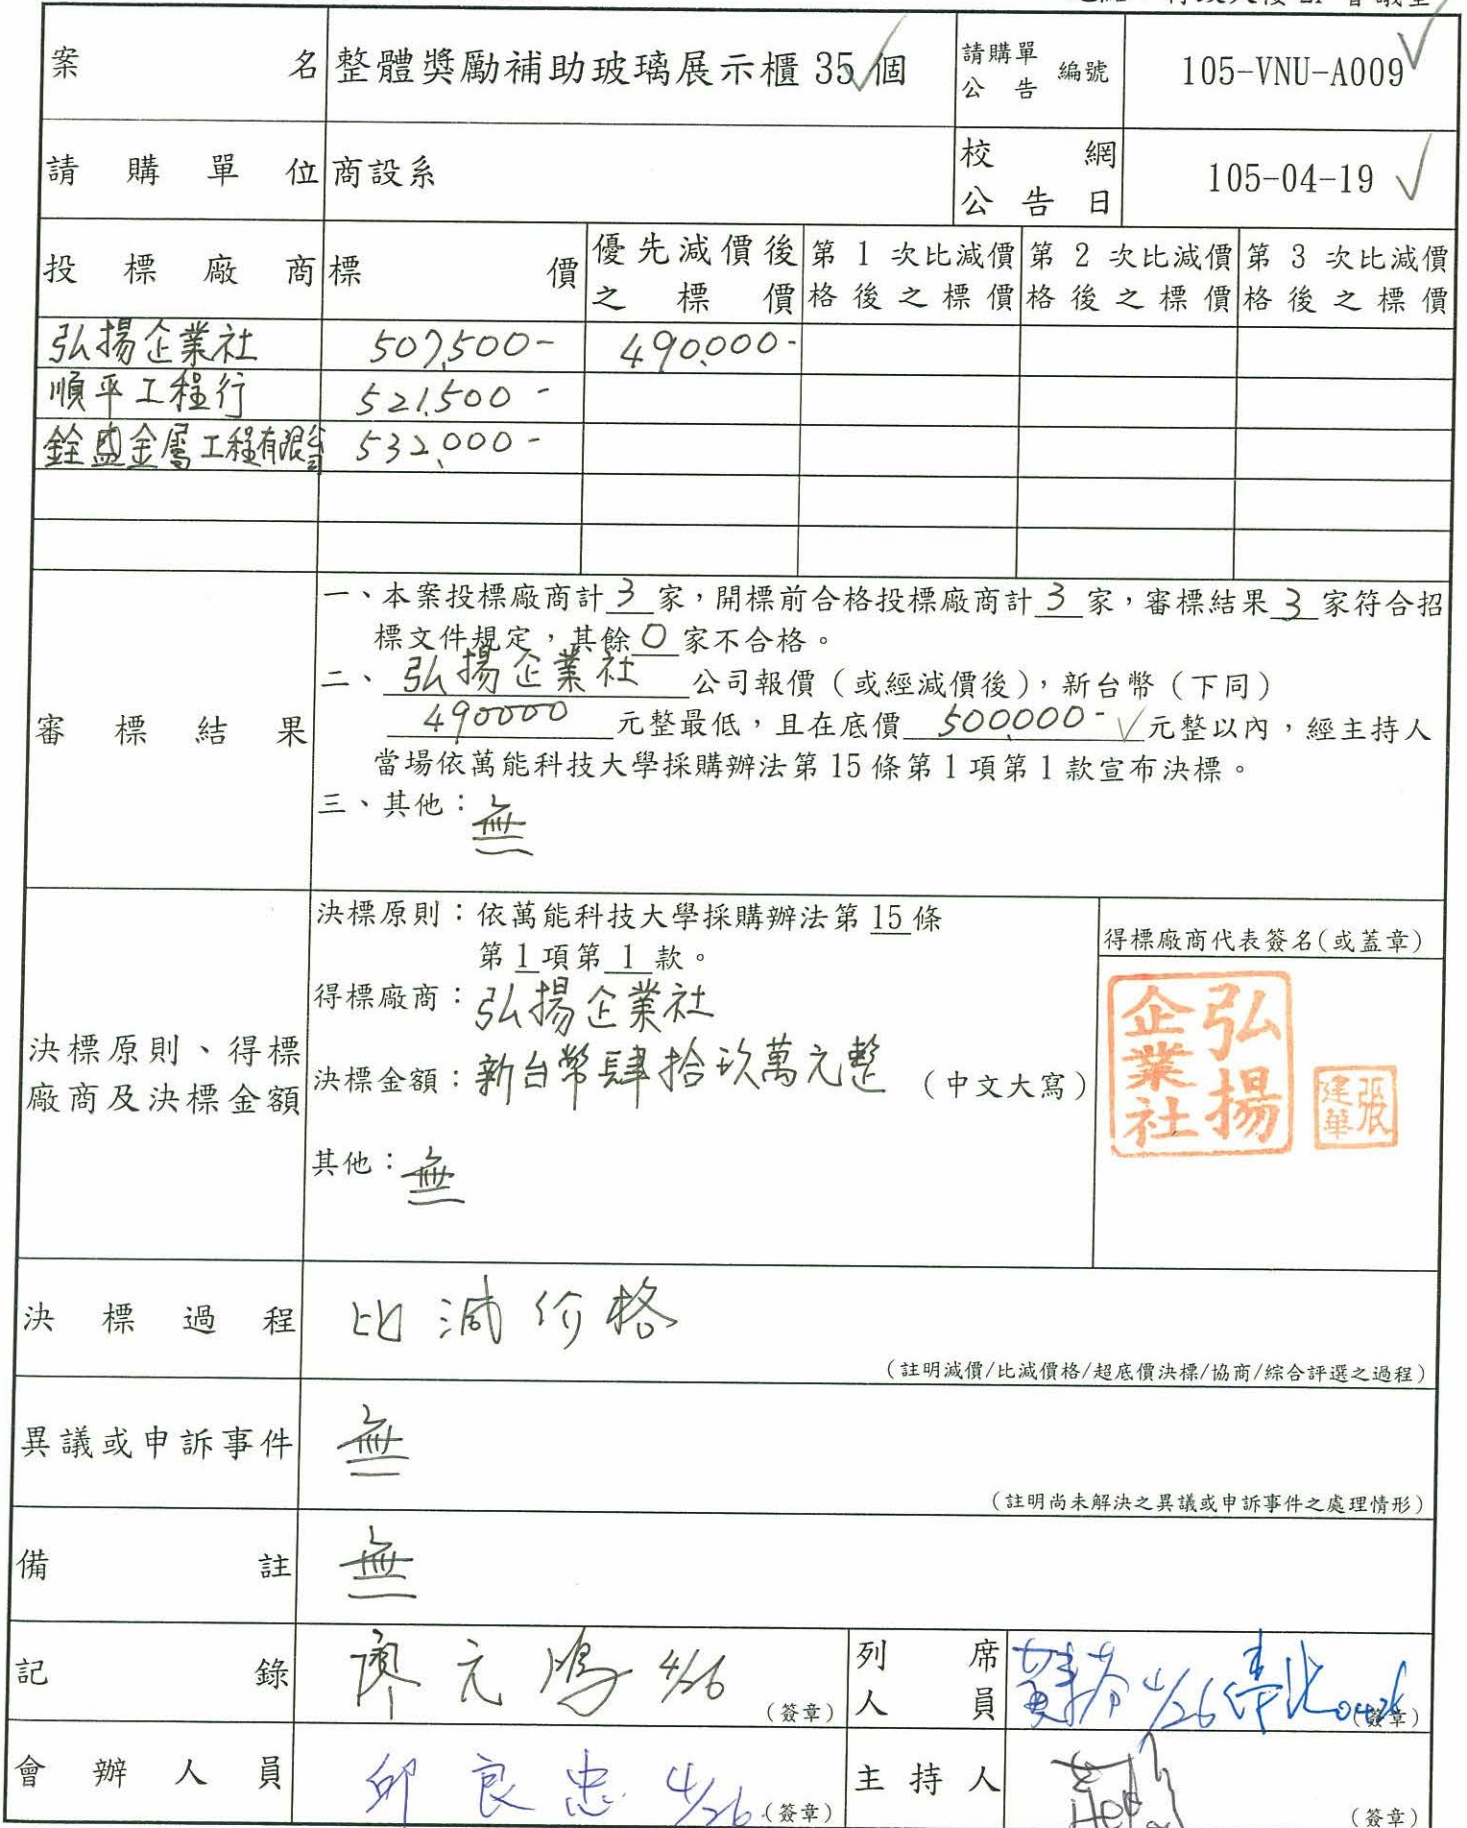 案名 整體獎勵補助玻璃展示櫃 35 個 請購單公告 編號 105-VNU-A009
請購單位 商設系 校網公告日 105-04-19
投標廠商 標價 優先減價後之標價 第 1 次比減價格後之標價 第 2 次比減價格後之標價 第 3 次比減價格後之標價
弘揚企業社 507,500- 490,000-
順平工程行 521,500-
銓盛金屬工程有限公司 532,000-
審標結果
一、本案投標廠商計 3 家，開標前合格投標廠商計 3 家，審標結果 3 家符合招
標文件規定，其餘 0 家不合格。
二、弘揚企業社 公司報價（或經減價後），新台幣（下同）
490000 元整最低，且在底價 500,000- 元整以內，經主持人
當場依萬能科技大學採購辦法第 15 條第 1 項第 1 款宣布決標。
三、其他：無
決標原則、得標
廠商及決標金額
決標原則：依萬能科技大學採購辦法第 15 條
第 1 項第 1 款。
得標廠商：弘揚企業社
決標金額：新台幣肆拾玖萬元整（中文大寫）
其他：無
得標廠商代表簽名(或蓋章)
弘揚企業社
張建華
決標過程 比減价格
（註明減價/比減價格/超底價決標/協商/綜合評選之過程）
異議或申訴事件 無
（註明尚未解決之異議或申訴事件之處理情形）
備註 無
記錄 廖元鴻 4/26（簽章） 列席人員 4/26 0426（簽章）
會辦人員 邱良忠 4/26（簽章） 主持人（簽章）